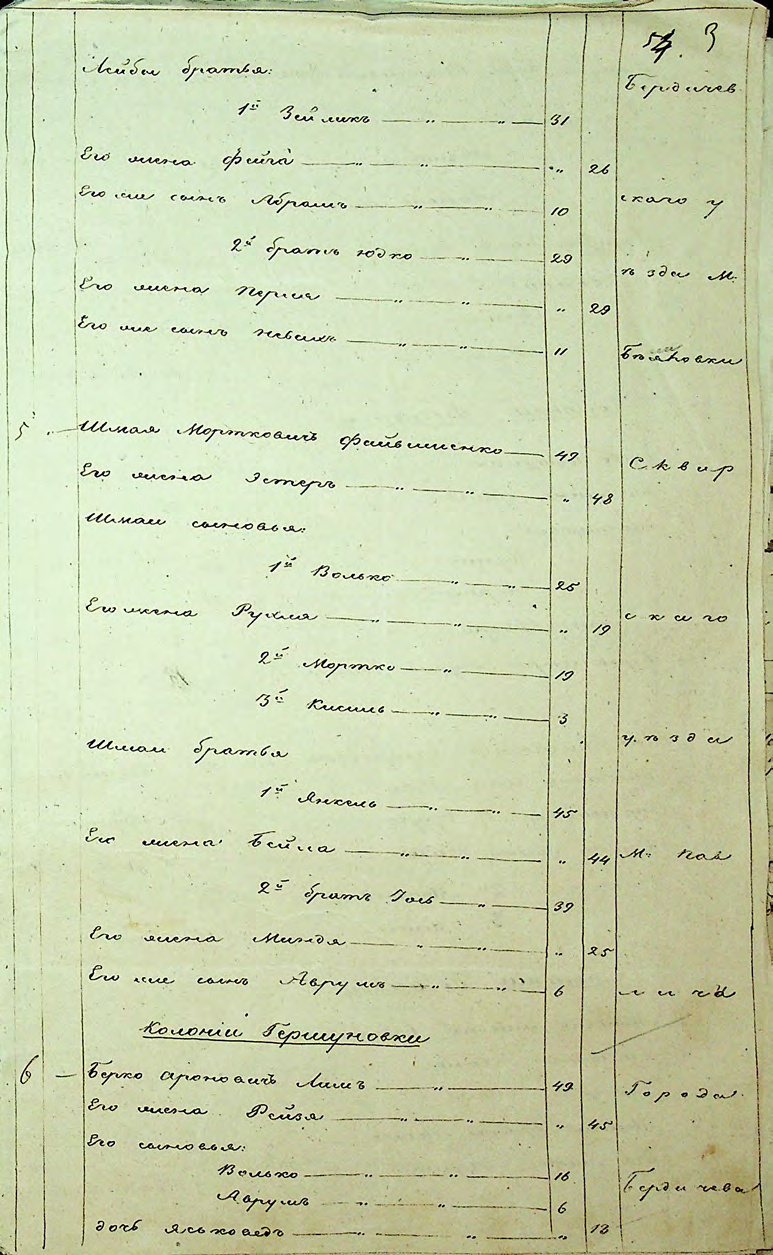 54. 3
Лейбы братья:
Бердичев
1й Зейликъ — " — " — 31
Его жена Фейга — " — " " 26
Его же сынъ Абрамъ — " — " — 10
скаго у
2й братъ Юдко — " — 29
ѣзда М.
Его жена Перля — " — " " 29
Его же сынъ — " — " — 11
5. — Шмая Мортковичъ Файвишенко — 49
Сквир
Его жена Эстеръ — " — " " 48
Шмаи сыновья:
1й Волько — " — " — 25
Его жена Рухля — " — " " 19
скаго
2й Мортко — " — 19
3й Кисиль — " — " — 3
уѣзда
Шмаи братья
1й Янкель — " — " — 45
Его жена Бейла — " — " " 44
М. Пав
2й братъ Iось — " — 39
Его жена Миндя — " — " " 25
Его же сынъ Аврумъ — " — " — 6
лича
Колонiи Гершуновки
6 — Берко Ароновичъ Лимъ — " — 49
Города
Его жена Рейзя — " — " " 45
Его сыновья:
Волько — " — " — 16
Бердичева
Аврумъ — " — " — 6
дочь — " — " " 13